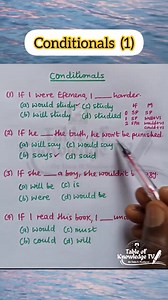 Conditionals (1)
Conditionals
(1) If I were Efemena, I ___ harder.
(a) would study (c) study
(b) will study (d) studied
(2) If he ___ the truth, he won't be punished
(a) will say (c) would say
(b) says (d) said
(3) If she ___ a boy, she wouldn't
(a) will be (c) is
(b) were (d) would be
(4) If I read this book, I ___
(a) would (c) must
(b) could (d) will
Table of
Knowledge TV